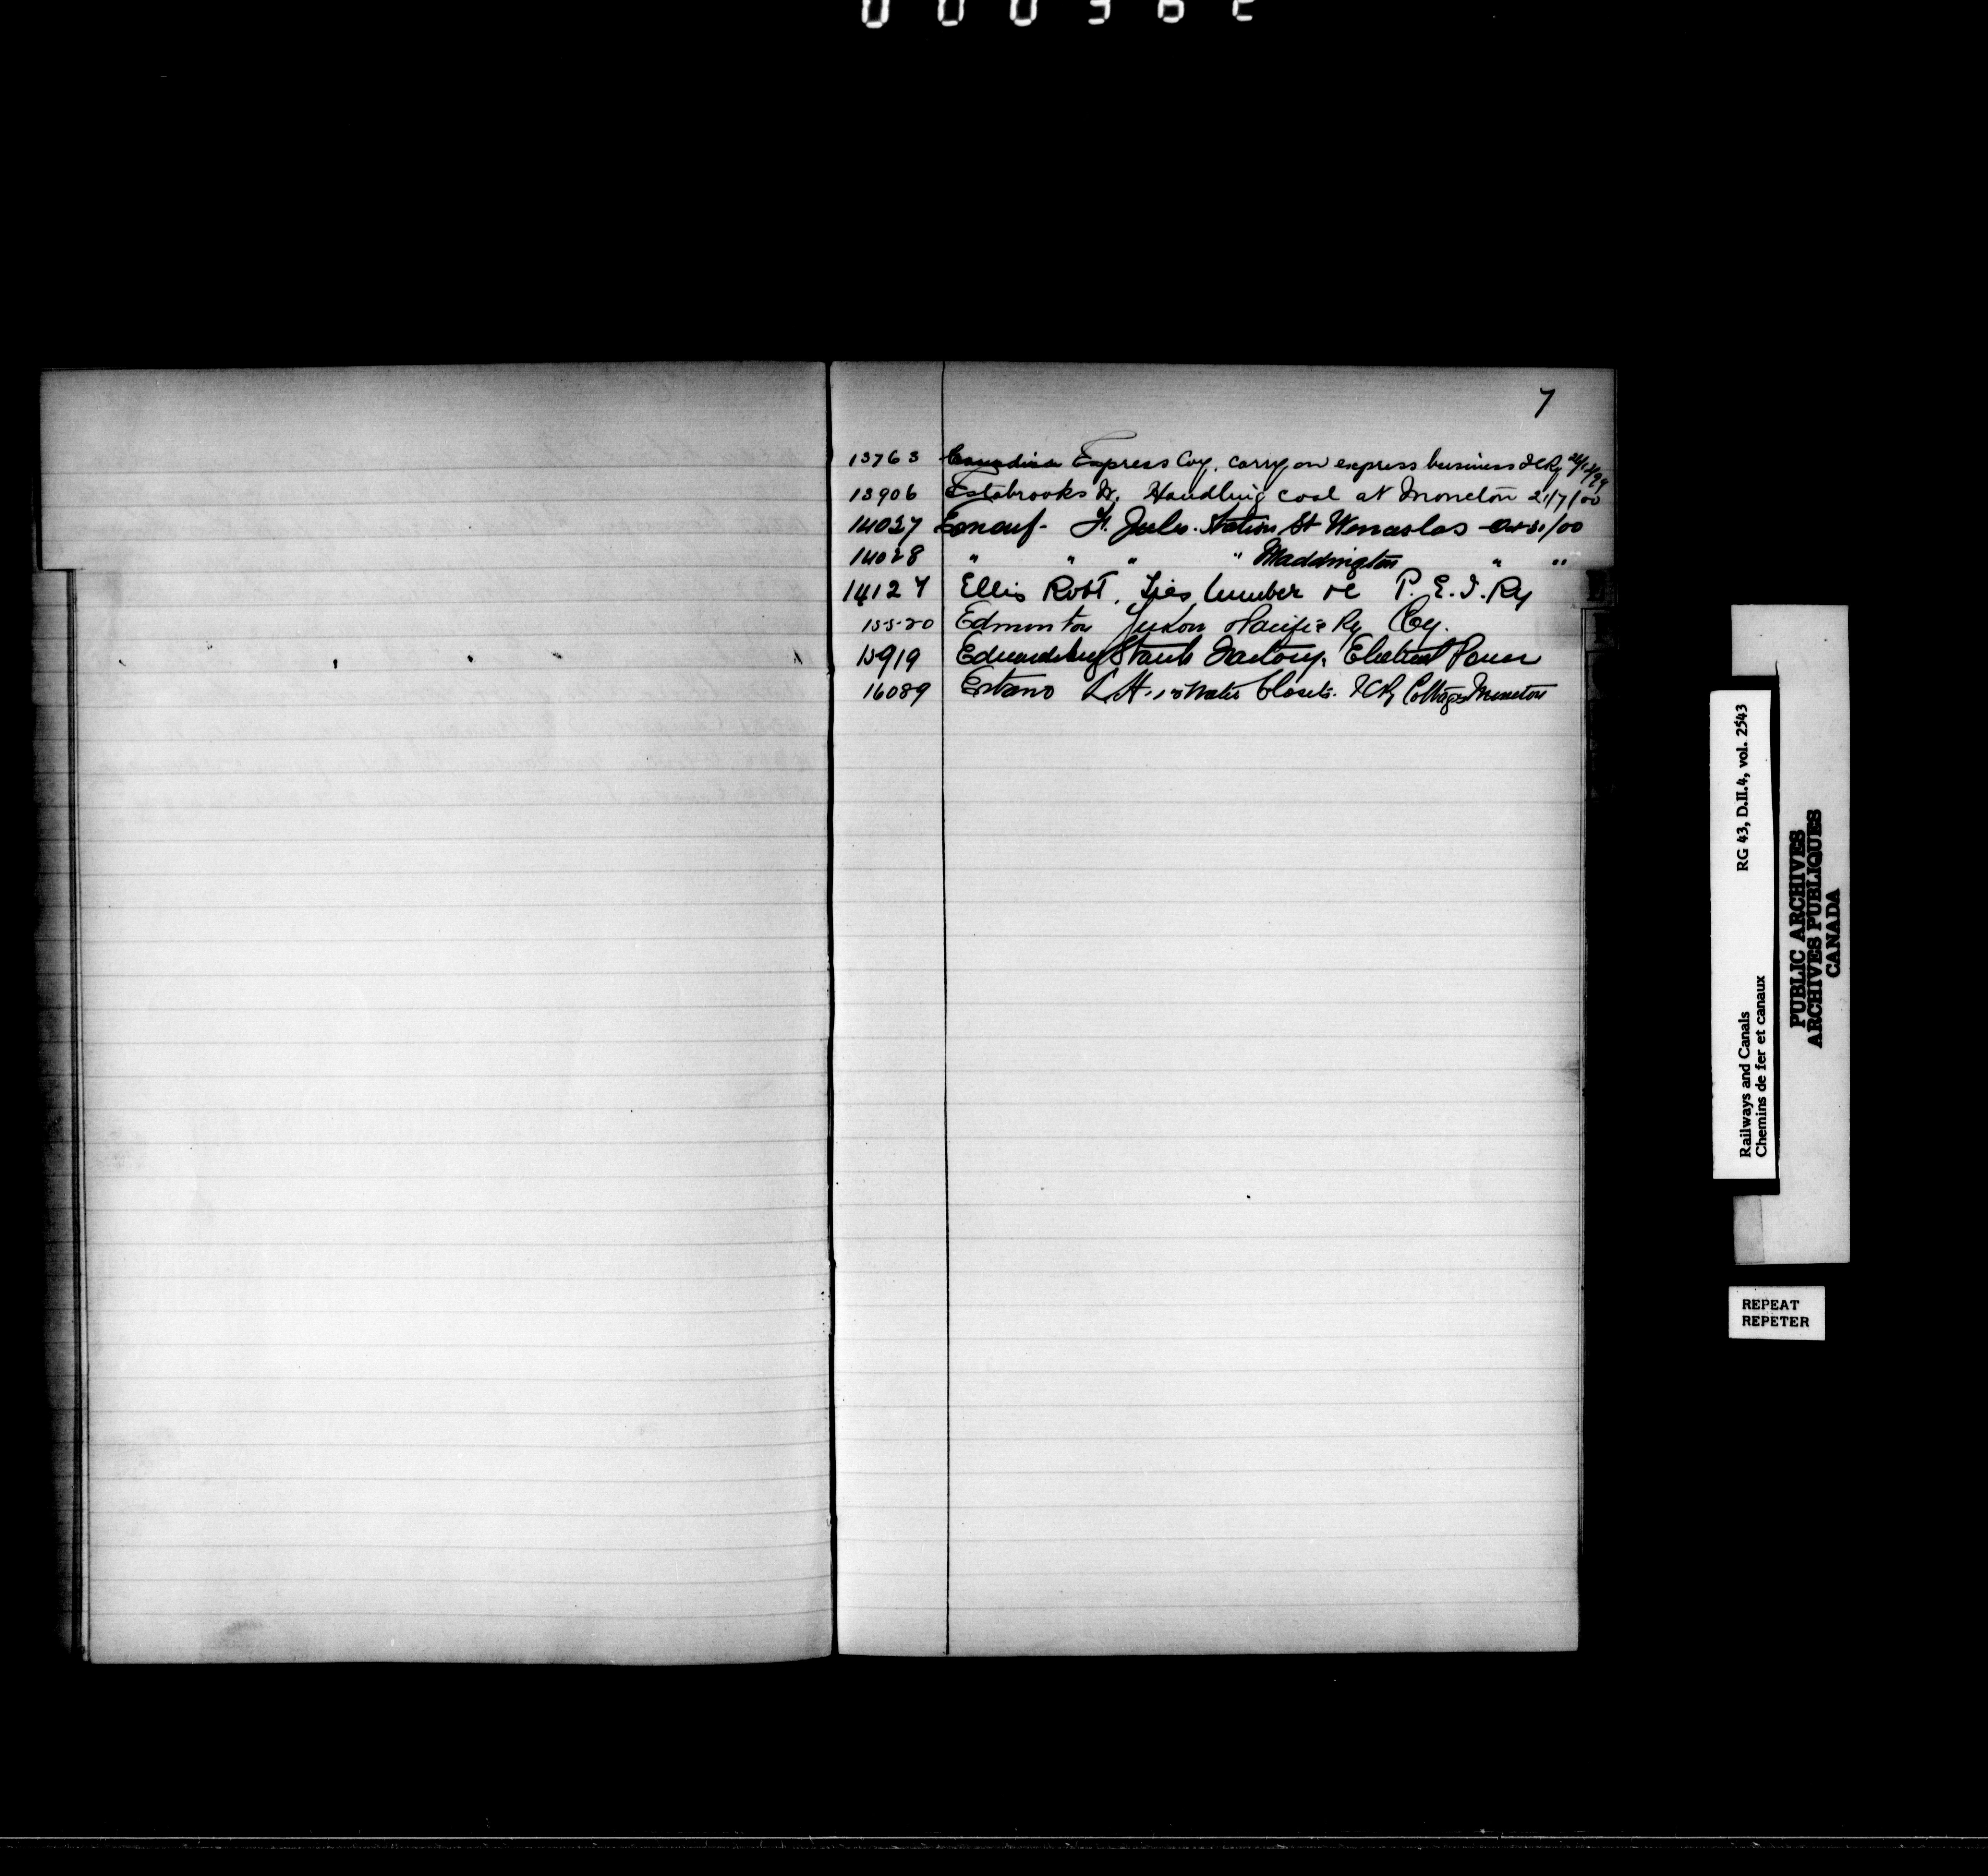 7
13763 Canadian Express Coy. carry on express business ICRy
13906 Estabrooks W. Handling coal at Moncton 21/7/00
14027 F. Jules. Station St Wenceslas Oct 31/00
14028 " " " " Maddington " "
14127 Ellis Robt. Ties lumber &c P. E. I. Ry
15520 Edmonton Yukon Pacific Ry Coy.
15919 Edwardsburg Starch Factory. Electric Power
16089 L. H. Water Closets. ICRy Cottage Moncton
E
RG 43, D.II.4, vol. 2543
Railways and Canals
Chemins de fer et canaux
PUBLIC ARCHIVES
ARCHIVES PUBLIQUES
CANADA
REPEAT
REPETER